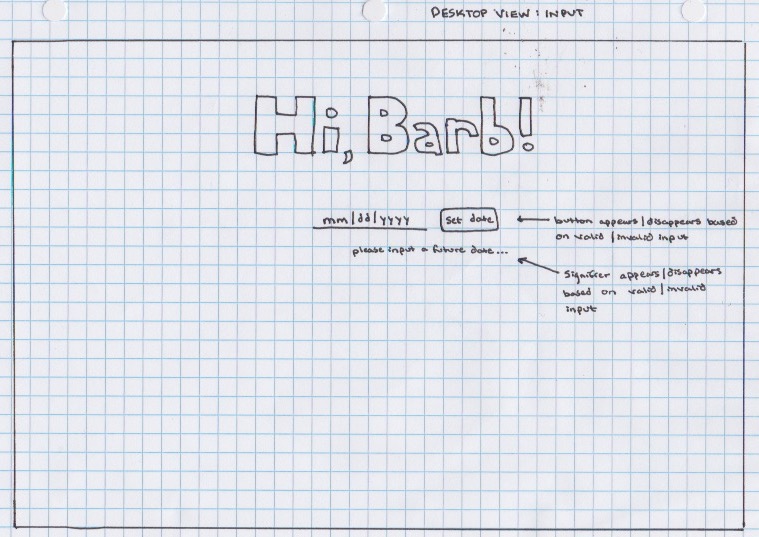 DESKTOP VIEW: INPUT
Hi, Barb!
mm/dd/yyyy
Set date
button appears/disappears based
on valid/invalid input
please input a future date...
Signifier appears/disappears
based on valid/invalid
input